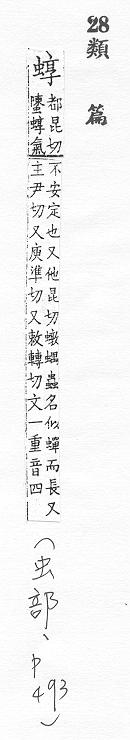 28 類篇
蜳
都昆切
螴蜳氣
不安定也又他昆切蟲名似蟬而長又
主尹切又庾準切又敕轉切文一重音四
(虫部、P493)